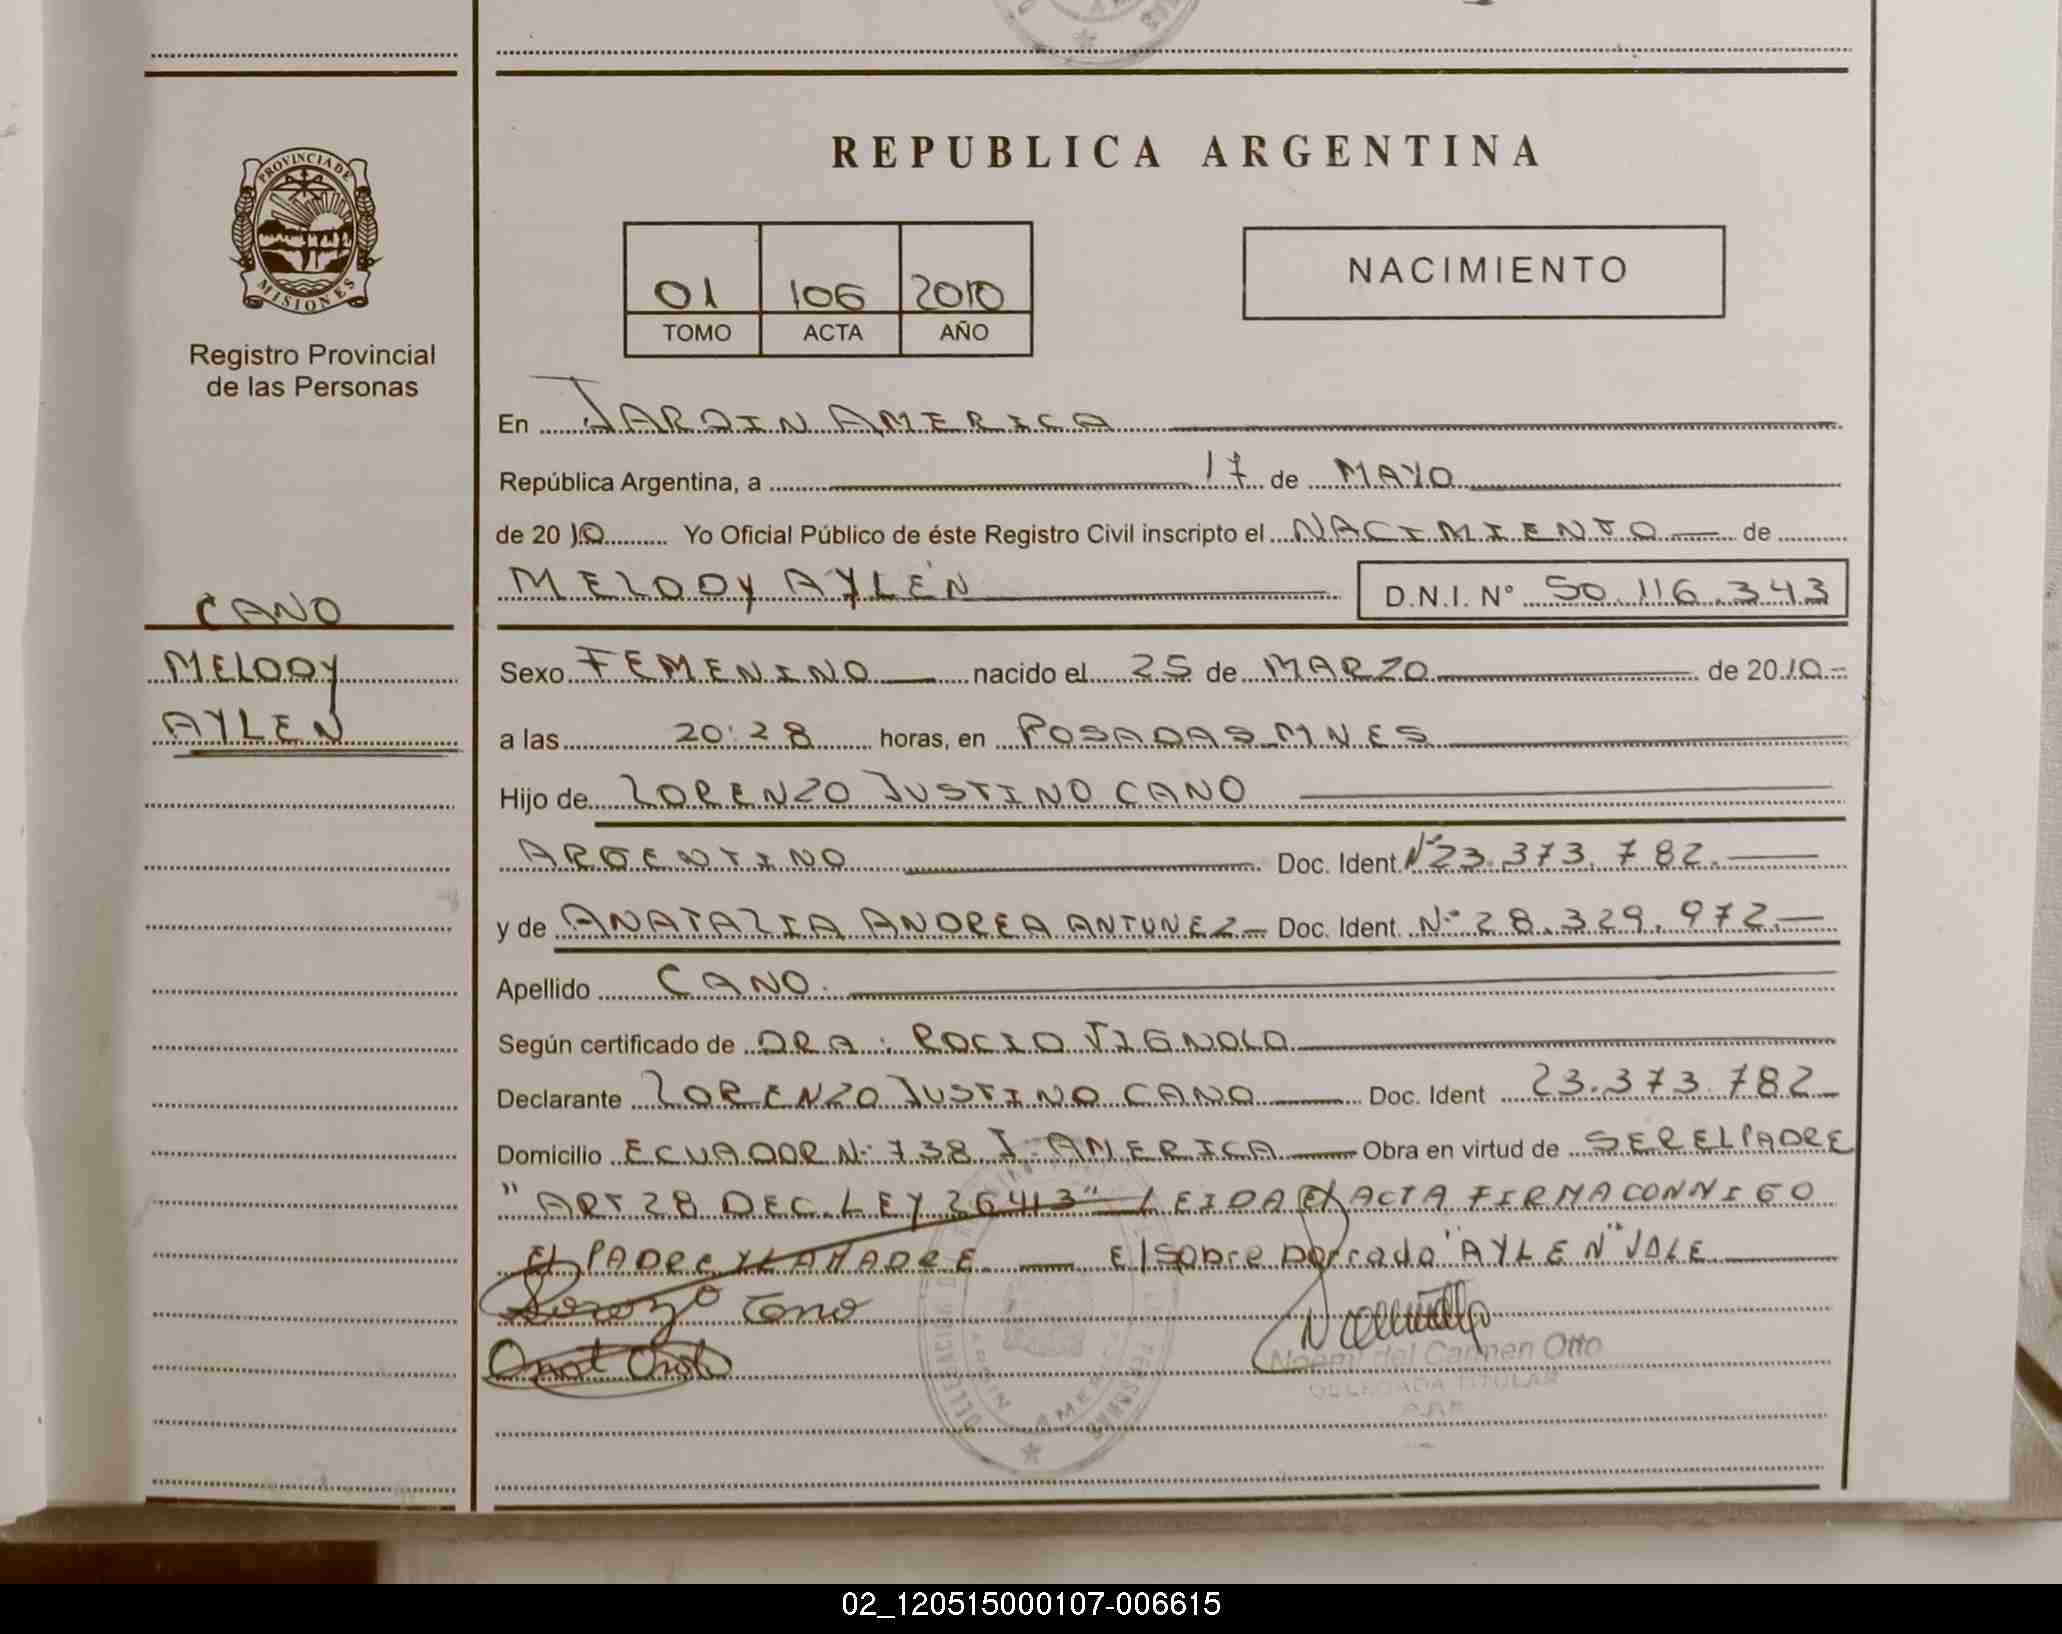 REPUBLICA ARGENTINA
PROVINCIA DE
MISIONES
Registro Provincial
de las Personas
01 106 2010
TOMO ACTA AÑO
NACIMIENTO
En JARDIN AMERICA
República Argentina, a 17 de MAYO
de 2010 Yo Oficial Público de éste Registro Civil inscripto el NACIMIENTO de
MELODY AYLÉN D.N.I. N° 50.116.343
CANO
MELODY
AYLEN
Sexo FEMENINO nacido el 25 de MARZO de 2010
a las 20:28 horas, en POSADAS MNES
Hijo de LORENZO JUSTINO CANO
ARGENTINO Doc. Ident. N° 23.373.782.
y de ANATALIA ANDREA ANTUNEZ Doc. Ident. N° 28.329.972.
Apellido CANO.
Según certificado de DRA: ROCIO VIGNOLO
Declarante LORENZO JUSTINO CANO Doc. Ident 23.373.782
Domicilio ECUADOR N: 738 J. AMERICA Obra en virtud de SER EL PADRE
"ART 28 DEC. LEY 26413" LEIDA EL ACTA FIRMA CONMIGO
EL PADRE Y LA MADRE. El sobre borrado "AYLEN" VALE
Lorenzo Cano
Noemi del Carmen Otto
DELEGADA TITULAR
02_120515000107-006615